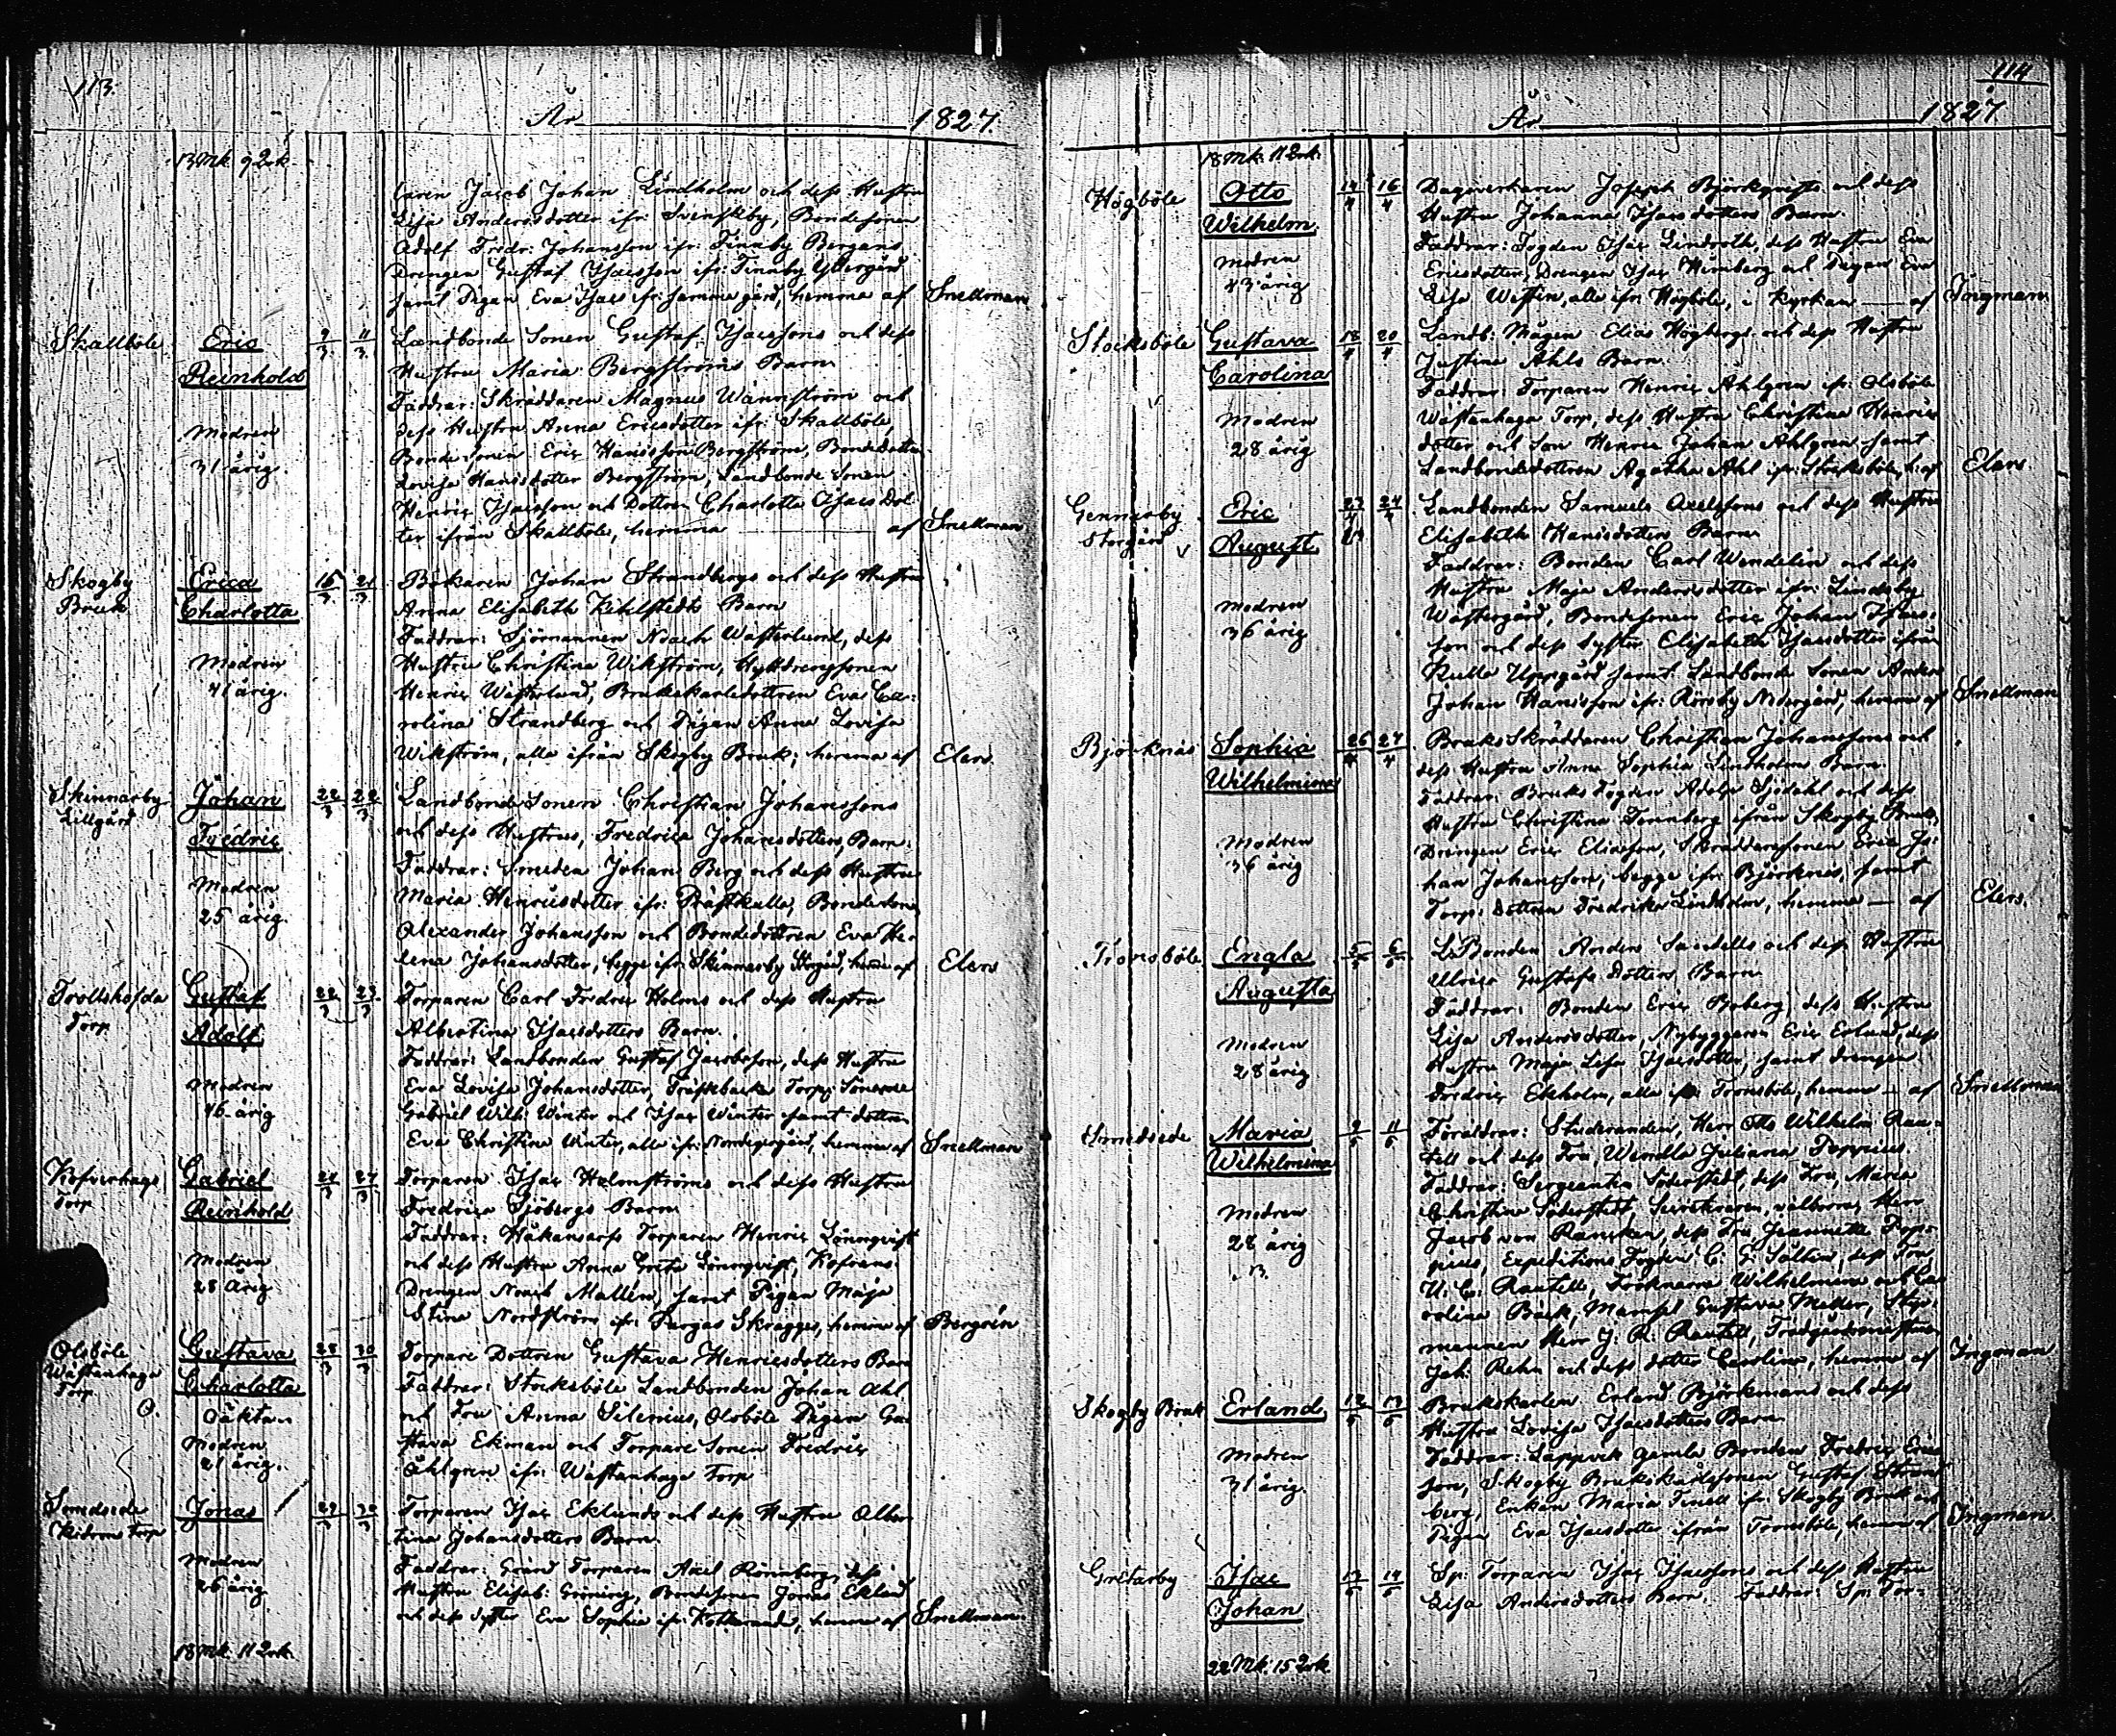 113.
År 1827.
13 Mk. 9 Qvk.
Caren Jacob Johan Lindholm och dess Hustru
Lisa Andersdotter ifr: Svenskby, Bondesonen
Adolf Fredr: Johansson ifr: Finnby Bergans
Drengen Gustaf Isacsson ifr: Finnby Ybergård
samt Pigan Eva Isacs ifr: samma gård, hemma af Snellman
Skallböle Eric 9/3 11/3 Landbonde Sonen Gustaf Isacssons och dess
Reinhold Hustru Maria Bergströms Barn
Faddrar: Skräddaren Magnus Wännström och
Modren dess Hustru Anna Ericsdotter ifr: Skallböle,
31 årig. Bonde Sonen Eric Hansson Bergström, Bondedottren
Lovisa Hansdotter Bergström, Landbonde Sonen
Henric Isacsson och Dottren Charlotta Isacs Dot-
ter ifrån Skallböle, hemma af Snellman
Skogby Erica 16/3 21/3 Bokaren Johan Strandbergs och dess Hustru
Bruk Charlotta Anna Elisabeth Kihlstedts Barn
Faddrar: Sjömannen Noach Wästerlund, dess
Modren Hustru Christina Wikström, Hyttdrengsonen
41 årig. Henric Wästerlund, Brukskarlsdottren Eva Ca-
rolina Strandberg och Pigan Anna Lovisa
Wikström, alla ifrån Skogby Bruk; hemma af Elers.
Skinnarby Johan 22/3 22/3 Landbonde Sonen Christian Johanssons
Lillgård Fredric och dess Hustrus, Fredrica Johansdotters, Barn.
Faddrar: Smeden Johan Berg och dess Hustru
Modren Maria Henricsdotter ifr: Prästkulla, Bondesonen
25 årig. Alexander Johansson och Bondedottren Eva He-
lena Johansdotter, begge ifr: Skinnarby Storgård, hemma af Elers
Trollshofda Gustaf 22/3 23/3 Torparen Carl Fredric Holms och dess Hustru
Torp Adolf Albertina Isacsdotters Barn.
Faddrar: Landbonden Gustaf Jacobsson, dess Hustru
Modren Eva Lovisa Johansdotter, Träskbacka Torp: Sönerne
46 årig Gabriel Wilh: Winter och Isac Winter samt dottren
Eva Christina Winter, alla ifr: Nordergård, hemma af Snellman
Kofverhage Gabriel 24/3 27/3 Torparen Isac Holmströms och dess Hustru
Torp Reinhold Fredrica Sjöbergs Barn
Faddrar: Håkansarfs Torparen Henric Lönnqvist
Modren och dess Hustru Anna Greta Lönnqvist, Kofrans
28 årig Drengen Noach Mallén, samt Pigan Maja
Stina Nordström ifr: Pargas Skrägges, hemma af Bergvén
Olsböle Gustava 28/3 30/3 Torpare Dottren Gustava Henricsdotters Barn
Wästanhage Charlotta Faddrar: Stocksböle Landbonden Johan Ahl
Torp Oäkta och Fru Anna Silenius, Olsböle Pigan Gu-
Modren stava Ekman och Torpare Sonen Fredric
21 årig. Åhlgren ifr: Wästanhage Torp
Smedsede Jonas 29/3 30/3 Torparen Isac Eklunds och dess Hustru Alber-
Torp tina Johansdotters Barn.
Modren Faddrar: Gränd Torparen Axel Rönnberg, dess
26 årig Hustru Elisab: Gröning, Bondesonen Jonas Eklund
och dess syster Eva Sophia ifr: hemma af Snellman
18 Mk. 11 Qvk.
114
År 1827
18 Mk. 11 Qvk.
Högböle Otto 14/4 16/4 Dagsverkaren Joseph Björkqvists och dess
Wilhelm. Hustru Johanna Isacsdotters Barn.
Modren Faddrar: Fogden Isac Lindroth, dess Hustru Eva
43 årig Ericsdotter, Drengen Isac Himberg och Pigan Eva
Lisa Westin, alla ifr: Högböle, i kyrkan af Ingman
Stocksböle Gustava 18/4 20/4 Landb: Mågen Elias Högbergs och dess Hustru
Carolina Justina Ahls Barn.
Faddrar: Torparen Henric Åhlgren ifr: Olsböle
Modren Wästanhage Torp, dess Hustru Christina Henrics
28 årig dotter och Son Henric Johan Åhlgren samt
Landbondedottren Agatha Ahl ifr: Stocksböle, h: af Elers
Gennarby Eric 23/4 24/4 Landbonden Samuels Axelssons och dess Hustru
Storgård August Elisabeth Hansdotters Barn
Faddrar: Bonden Carl Wendelin och dess
Modren Hustru Maja Andersdotter ifr: Lindsby
36 årig Wästergård, Bondesonen Eric Johan Isacs-
son och dess Syster Elisabeth Isacsdotter ifrån
Kulla Uppgård samt Landbonde Sonen Anders
Johan Hansson ifr: Rörsby Nedergård, hemma af Snellman
Björknäs Sophia 26/4 27/4 Bruks Skräddaren Christian Johanssons och
Wilhelmina dess Hustru Anna Sophia Lindholms Barn.
Faddrar: Bruks Fogden Adolf Sjödahl och dess
Modren Hustru Christina Tennberg ifrån Skogby Bruk,
36 årig Drengen Eric Eliasson, Skräddaresonen Eric Jo-
han Johansson, begge ifr: Björknäs, samt
Torp: Dottren Fredrika Lindholm, hemma af Elers.
Tronsböle Engla 5/5 6/5 L: Bonden Anders Sandells och dess Hustru
Augusta Ulrica Gustafs dotters Barn
Faddrar: Bonden Eric Boberg, dess Hustru
Modren Lisa Andersdotter, Nybyggaren Eric Erlund, dess
28 årig Hustru Maja Lisa Isacsdotter, samt drengen
Fredric Ekholm, alla ifr: Tronsböle, hemma af Snellman
Smedsede Maria 9/5 11/5 Föräldrar: Studeranden, Herr Otto Wilhelm Ran-
Wilhelmina tell och dess Fru, Wendla Juliana Toppius.
Faddrar: Sergeanten Söderstedt, dess Fru, Maria
Modren Christina Söderstedt, Secretraren, välborne Herr
28 årig Jacob von Rancken, dess Fru Jeannette Topp-
pius, Expeditions Fogden C. G. Sältin, dess Fru
U. C. Rantell, Fröknarna Wilhelmina och Ca-
rolina Bäck, Mamsel Gustava Meller, Styr-
mannen Herr J. R. Rantell, Trädgårdsmästaren
Joh: Rehn och dess dotter Carolina, hemma af Ingman
Skogby Bruk Erland 12/5 13/5 Brukskarlen Erland Björkmans och dess
Hustru Lovisa Isacsdotters Barn.
Modren Faddrar: Lappvik gamla Bonden Fredric Erics-
31 årig. son, Skogby Brukskarlssonen Gustaf Strand-
berg, Enkan Maria Tinell ifr: Skogby Bruk och
Pigan Eva Isacsdotter ifrån Tronsböle, hemma af Ingman
Gretarby Isac 13/5 14/5 Sp: Torparen Isac Isacssons och dess Hustru
Johan Lisa Andersdotters Barn. Faddrar: Sp: Tor-
22 Mk. 15 Qvk